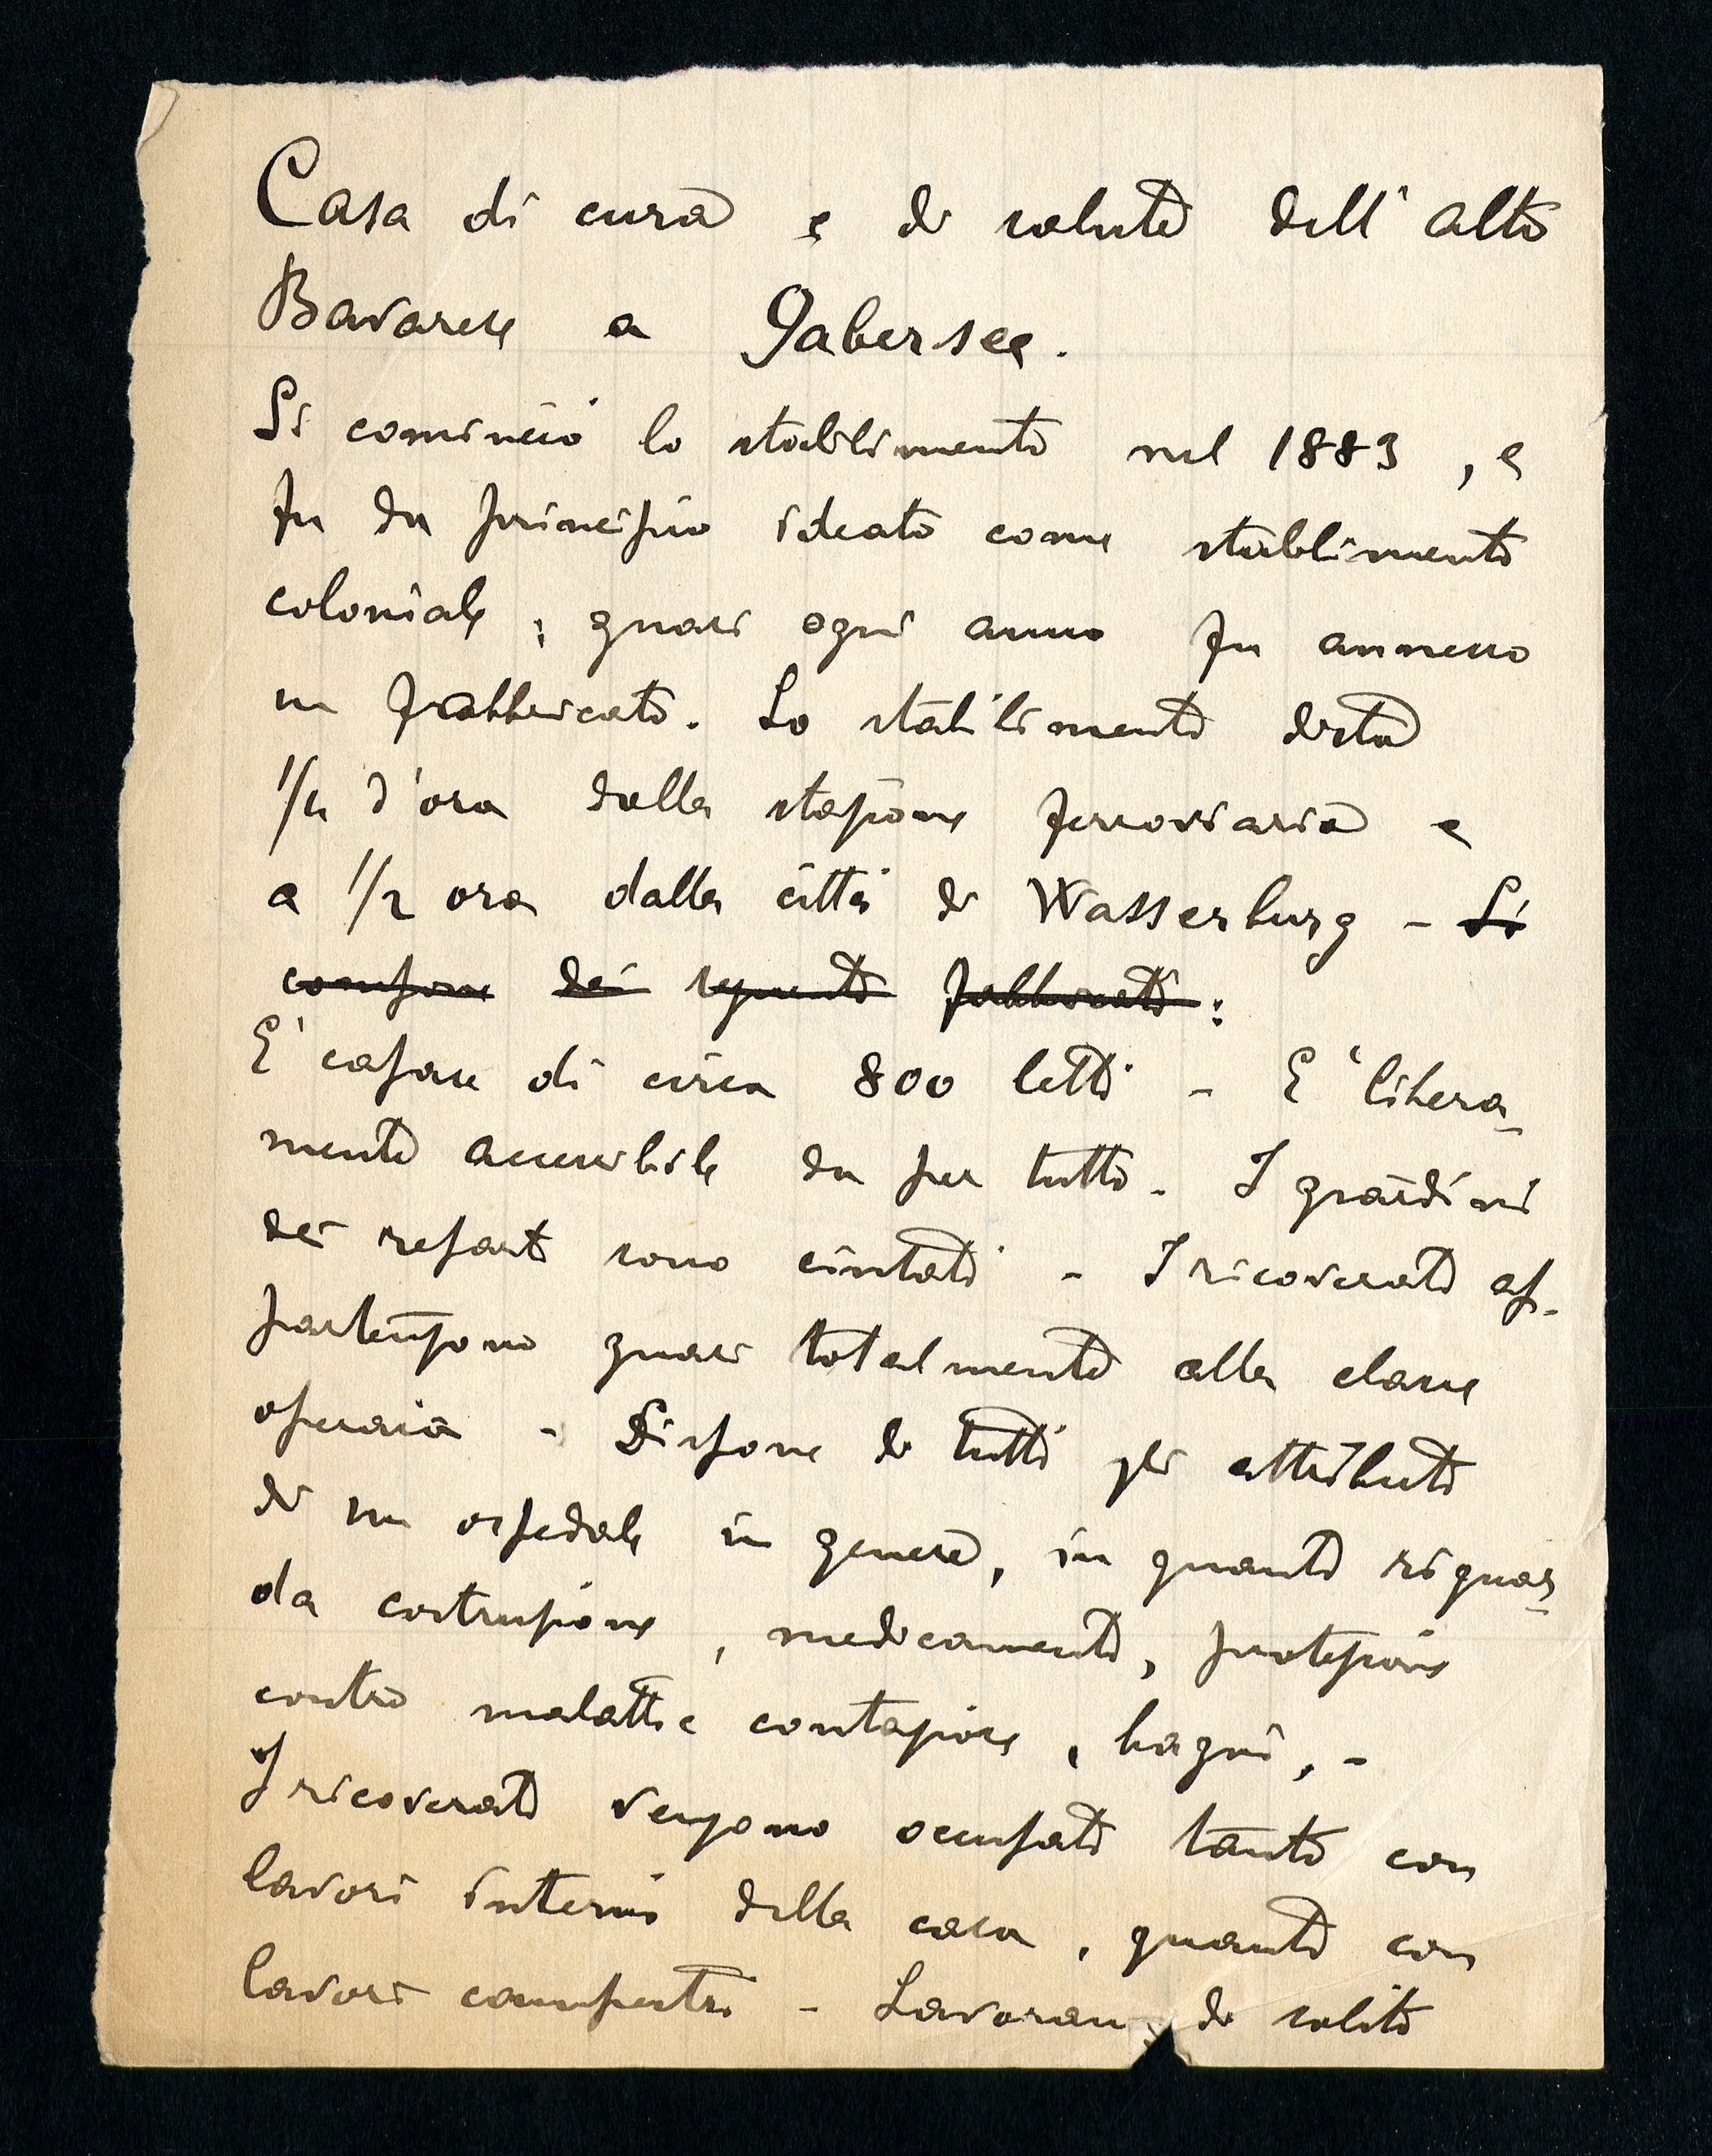 Casa di cura e di salute dell'alto
Bavarese a Gabersee.
Si cominciò lo stabilimento nel 1883, e
fu da principio ideato come stabilimento
coloniale; quasi ogni anno fu annesso
un fabbricato. Lo stabilimento dista
1/4 d'ora dalla stazione ferroviaria e
a 1/2 ora dalla città di Wasserburg - Si
compone dei seguenti fabbricati:
E' capace di circa 800 letti - E' libera-
mente accessibile da per tutto. I giardini
dei reparti sono cintati - I ricoverati ap-
partengono quasi totalmente alla classe
operaia - Dispone di tutti gli attributi
di un ospedale in genere, in quanto riguar-
da costruzione, medicamenti, protezione
contro malattie contagiose, bagni, -
I ricoverati vengono occupati tanto con
lavori interni della casa, quanto con
lavori campestri - Lavorano di solito